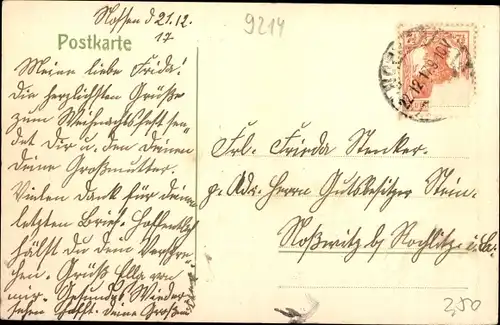 Nossen d 21.12.
17
9214
Postkarte
Meine liebe Frida!
Die herzlichsten Grüße
zum Weihnachtsfest sen-
det Dir u. den Deinen
Deine Großmutter.
Vielen Dank für deinen
letzten Brief. Hoffentlich
hälst du dein Verspre-
chen. Grüß Ella von
mir. Gesundes Wieder-
sehen hofft. Deine Großm.
Frl. Frieda Stenker.
p. Adr. Herrn Gutsbesitzer Stein.
Noßwitz b/ Rochlitz i. Sa.
2,50